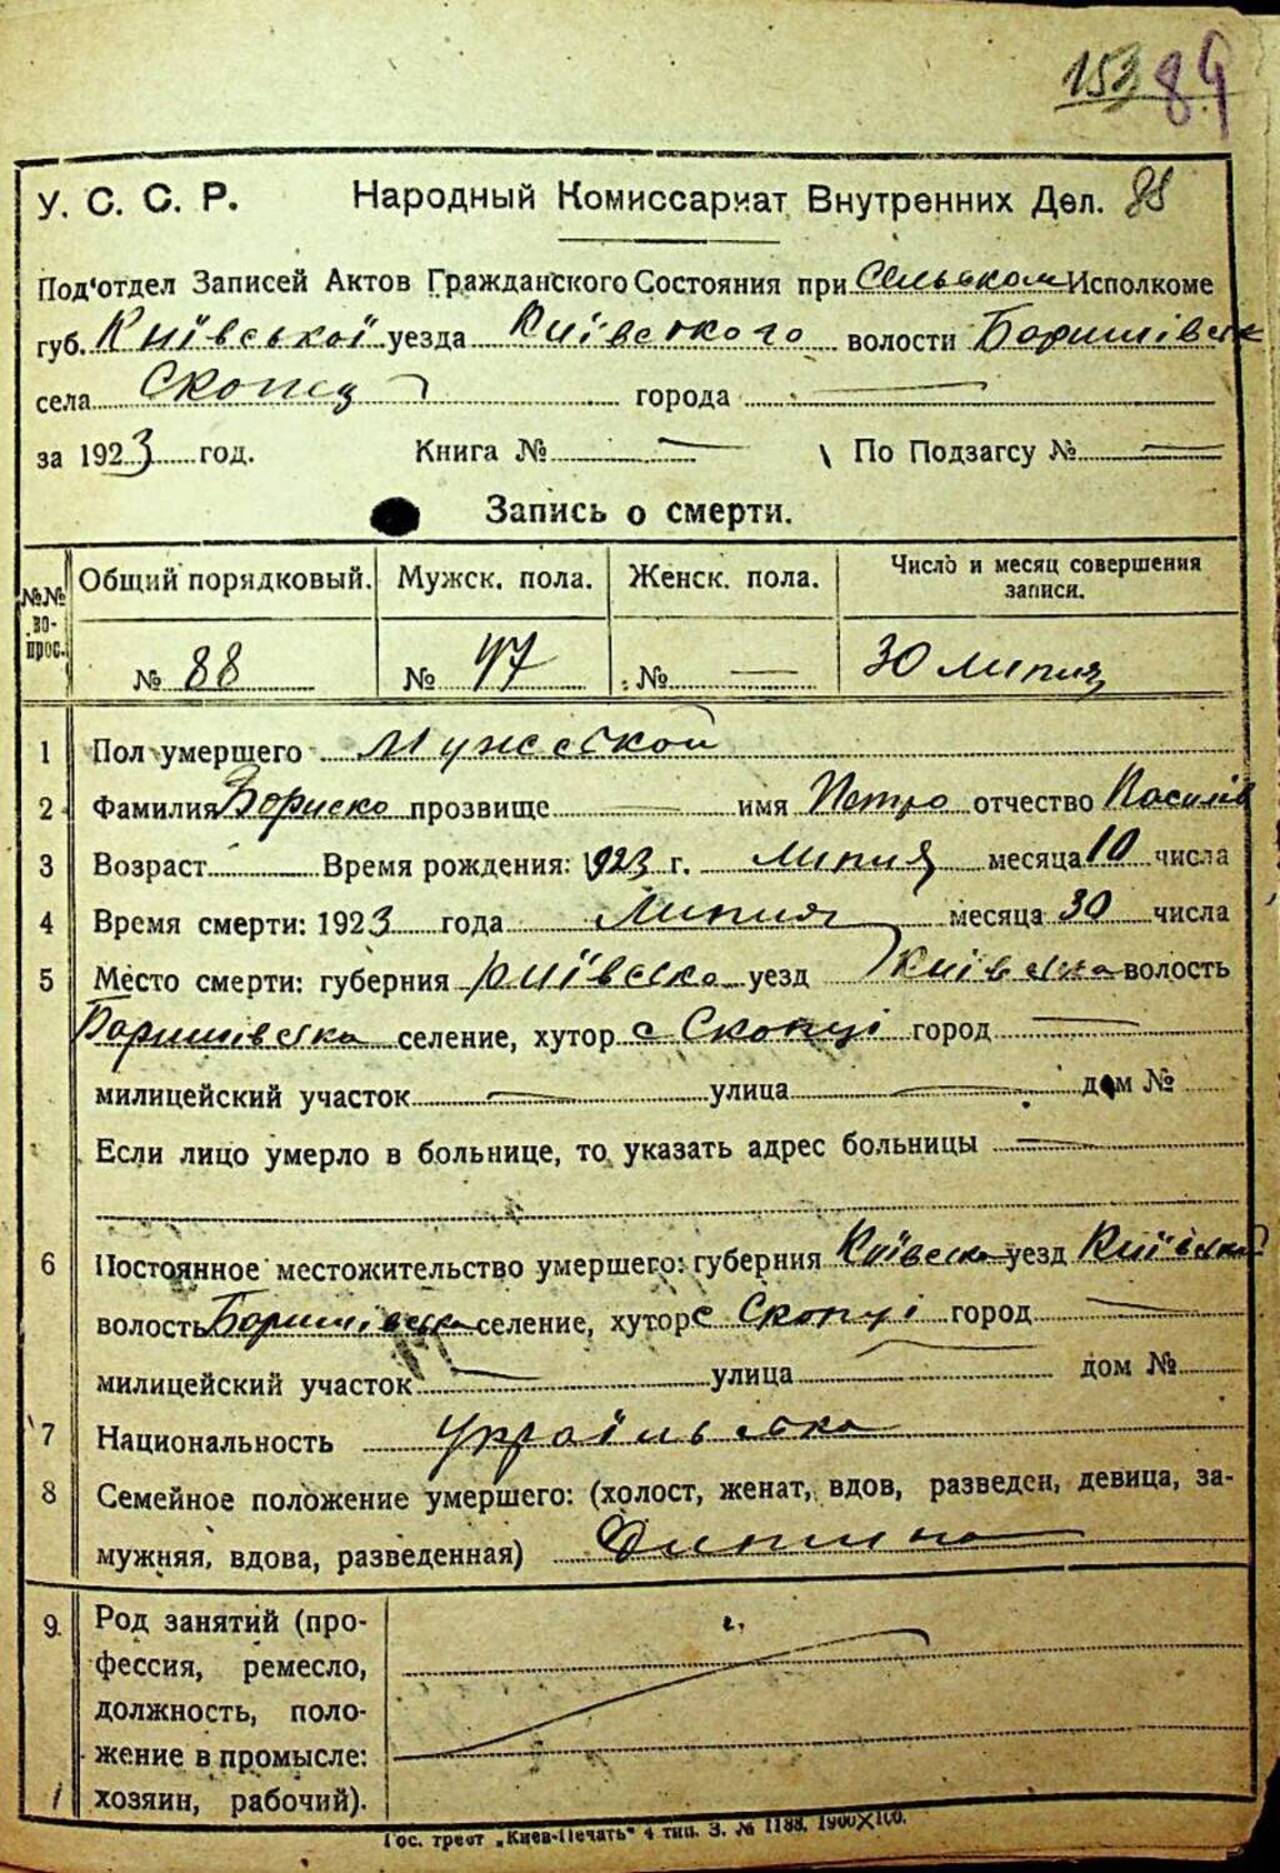 153 89
У. С. С. Р. Народный Комиссариат Внутренних Дел. 88
Под'отдел Записей Актов Гражданского Состояния при Сельском Исполкоме
губ. Київської уезда Київського волости Боришівськ
села Скопці города —
за 1923 год. Книга № — По Подзагсу № —
Запись о смерти.
№№ вопрос. Общий порядковый. Мужск. пола. Женск. пола. Число и месяц совершения записи.
№ 88 № 47 № — 30 липня
1 Пол умершего Мужеской
2 Фамилия Бориско прозвище — имя Петро отчество Василів
3 Возраст Время рождения: 1923 г. липня месяца 10 числа
4 Время смерти: 1923 года Липня месяца 30 числа
5 Место смерти: губерния Київська уезд Київська волость
Боришівська селение, хутор с Скопці город —
милицейский участок — улица — дом №
Если лицо умерло в больнице, то указать адрес больницы —
6 Постоянное местожительство умершего: губерния Київська уезд Київська
волость Боришівська селение, хутор с Скопці город —
милицейский участок — улица — дом №
7 Национальность
8 Семейное положение умершего: (холост, женат, вдов, разведен, девица, за-
мужняя, вдова, разведенная) Дитина
9. Род занятий (про-
фессия, ремесло,
должность, поло-
жение в промысле:
хозяин, рабочий).
Гос. трест „Киев-Печать" 4 тип. З. № 1188. 1900X100.